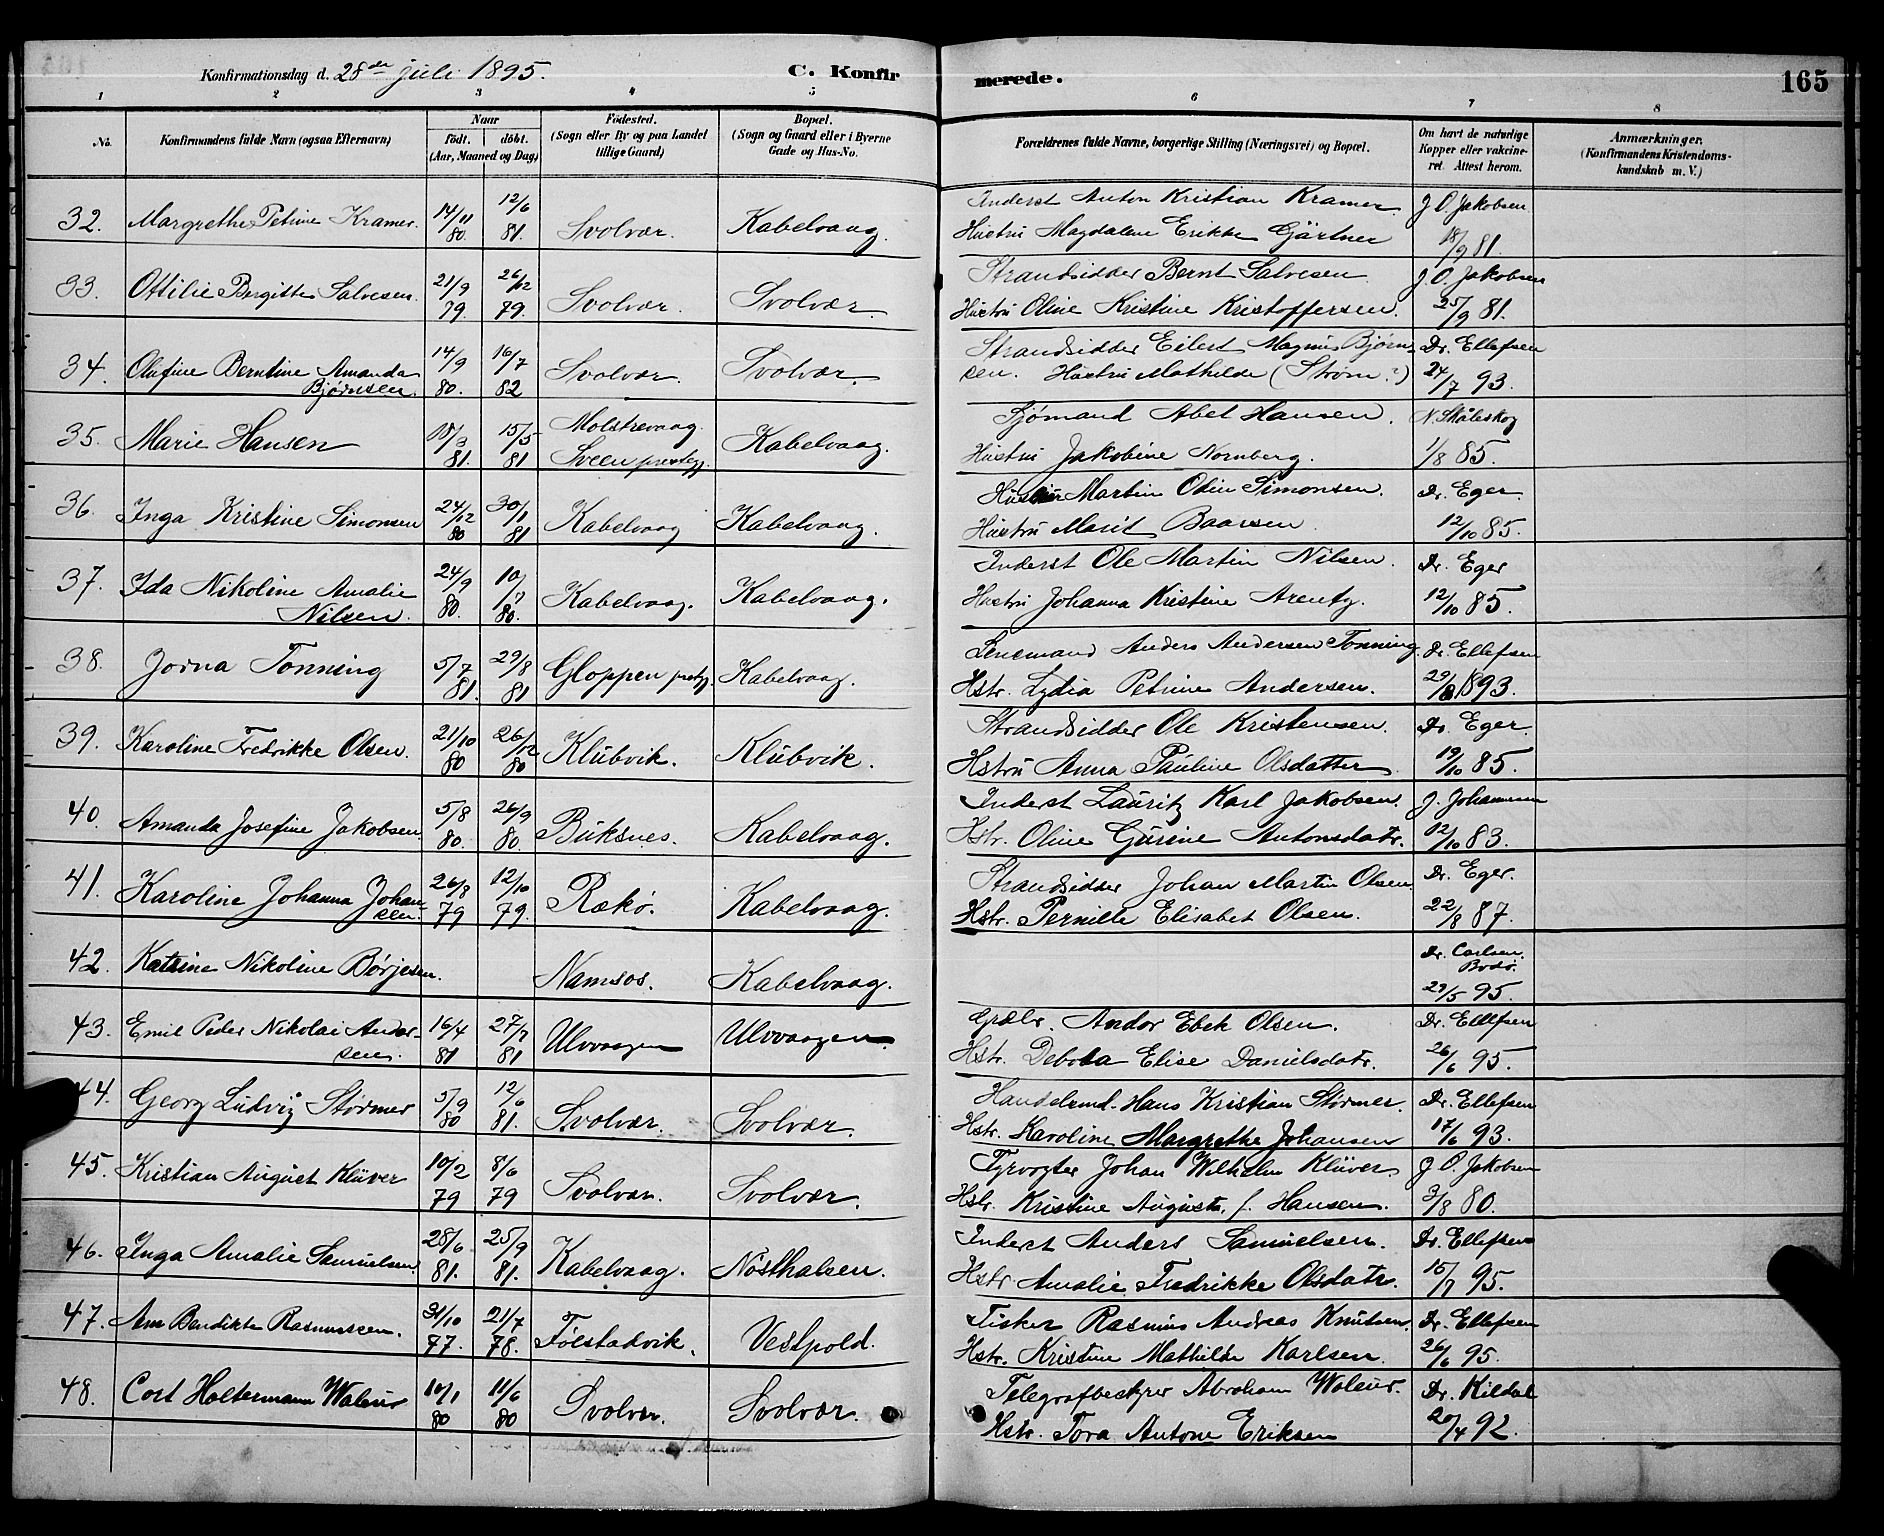 Konfirmationsdag d. 28de juli 1895. C. Konfir merede. 165
1 2 3 4 5 6 7 8
No. Konfirmandens fulde Navn (ogsaa Efternavn) Naar Födt. döbt. (Aar, Maaned og Dag) Födested. (Sogn eller By og paa Landet tillige Gaard) Bopæl. (Sogn og Gaard eller i Byerne Gade og Hus-No. Forældrenes fulde Navne, borgerlige Stilling (Næringsvei) og Bopæl. Om havt de naturlige Kopper eller vakcineret. Attest herom. Anmærkninger. (Konfirmandens Kristendomskundskab m. V.)
32. Margrethe Petrine Kramer. 14/11 80. 12/6 81. Svolvær. Kabelvaag. Inderst Anton Kristian Kramer. J O. Jakobsen
Hustru Magdalene Erikke Gjärtner 18/9 81.
33. Ottilie Bergitte Salvesen. 21/9 79. 26/12 79. Svolvær. Svolvær. Strandsidder Bernt Salvesen J. O. Jakobsen
Hustru Oline Kristine Kristoffersen. 25/9 81.
34. Olufine Berntine Amanda Bjørnsen. 14/9 80. 16/7 82 Svolvær. Svolvær. Strandsidder Eilert Magnus Bjørn- Dr. Ellefsen
sen. Hustru Mathilde (Strøm?) 24/7 93.
35. Marie Hansen 18/3 81. 15/5 81 Molstrevaag. Sveen prestegj. Kabelvaag. Sjømand Abel Hansen. N. Skåleskog
Hustru Jakobine Nornberg. 1/8 85.
36. Inga Kristine Simonsen 24/12 80 30/1 81 Kabelvaag Kabelvaag. Martin Odin Simonsen. Dr. Eger.
Hustru Marit Baarsen. 12/10 85.
37. Ida Nikoline Amalie Nilsen. 24/9 80. 10/ 80. Kabelvaag. Kabelvaag. Inderst Ole Martin Nilsen. Dr. Eger
Hustru Johanna Kristine Arentz. 12/10 85.
38. Jorna Tonning 5/7 81. 29/8 81 Gloppen prestgj. Kabelvaag. Lensmand Anders Andersen Tonning. Dr. Ellefsen
Hstr. Lydia Petrine Andersen. 29/8 1893.
39. Karoline Fredrikke Olsen. 21/10 80 26/12 80 Klubvik. Klubvik. Strandsidder Ole Kristensen. Dr. Eger.
Hstru Anna Pauline Olsdatter 19/10 85.
40. Amanda Josefine Jakobsen 5/8 80. 26/9 80. Buksnes. Kabelvaag. Inderst Lauritz Karl Jakobsen. J. Johannsen
Hstr. Oline Gurine Antonsdatr. 12/10 83.
41. Karoline Johanna Johansen. 26/8 79 12/10 79. Rækø. Kabelvaag. Strandsidder Johan Martin Olsen Dr. Eger.
Hstr. Pernille Elisabet Olsen. 22/8 87.
42. Katrine Nikoline Børjesen. Namsos. Kabelvaag. Dr. Carlsen. Bodø.
29/5 95.
43. Emil Peder Nikolai Andorsen. 16/4 81 27/7 81 Ulvvaagen Ulvvaagen. Grdbr. Andor Ebek Olsen. Dr. Ellefsen
Hstr. Debora Elise Danielsdatr. 26/6 95.
44. Georg Ludvig Størmer 5/9 80 12/6 81. Svolvær. Svolvær. Handelsmd. Hans Kristian Størmer. Dr. Ellefsen
Hstr. Karoline Margrethe Johansen 17/6 93.
45. Kristian August Klüver 10/2 79 8/6 79 Svolvær. Svolvær. Fyrvogter Johan Wilhelm Klüver J O. Jakobsen
Hstr. Kristine Augusta f. Hansen. 3/8 80.
46. Inga Amalie Samuelsen. 28/6 81. 25/9 81. Kabelvaag. Nøsthalsen. Inderst Anders Samuelsen. Dr. Ellefsen
Hstr. Amalie Fredrikke Olsdatr. 15/7 95.
47. Ane Bendikte Rasmussen. 31/10 77. 21/7 78. Følstadvik. Vestpold. Fisker Rasmus Andreas Knutsen. Dr. Ellefsen
Hstr. Kristine Mathilde Karlsen. 26/6 95.
48. Cort Holtermann Waleur 10/1 80 11/6 80 Svolvær. Svolvær. Telegrafbestyrer Abraham Waleur. Dr. Kildal
Hstr. Tora Antone Eriksen 20/4 92.